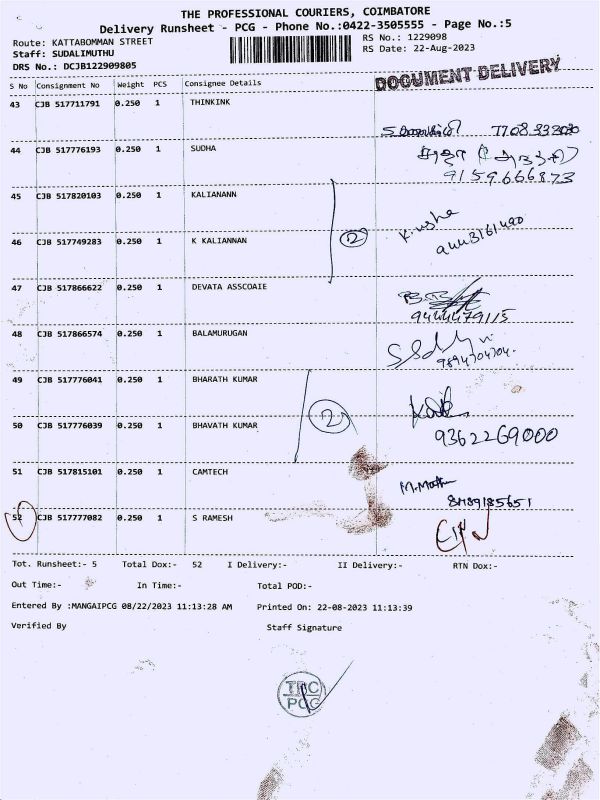 THE PROFESSIONAL COURIERS, COIMBATORE
Delivery Runsheet - PCG - Phone No.:0422-3505555 - Page No.:5
Route: KATTABOMMAN STREET
RS No.: 1229098
Staff: SUDALIMUTHU
RS Date: 22-Aug-2023
DRS No.: DCJB122909805
DOCUMENT DELIVERY
S No Consignment No Weight PCS Consignee Details
43 CJB 517711791 0.250 1 THINKINK
44 CJB 517776193 0.250 1 SUDHA
9159666873
45 CJB 517820103 0.250 1 KALIANANN
K. usha
2
9443161490
46 CJB 517749283 0.250 1 K KALIANNAN
47 CJB 517866622 0.250 1 DEVATA ASSCOAIE
9444479115
48 CJB 517866574 0.250 1 BALAMURUGAN
9894704704.
49 CJB 517776041 0.250 1 BHARATH KUMAR
2
50 CJB 517776039 0.250 1 BHAVATH KUMAR
9362269000
51 CJB 517815101 0.250 1 CAMTECH
52 CJB 517777082 0.250 1 S RAMESH
Tot. Runsheet:- 5 Total Dox:- 52 I Delivery:- II Delivery:- RTN Dox:-
Out Time:- In Time:- Total POD:-
Entered By :MANGAIPCG 08/22/2023 11:13:28 AM Printed On: 22-08-2023 11:13:39
Verified By Staff Signature
PCG